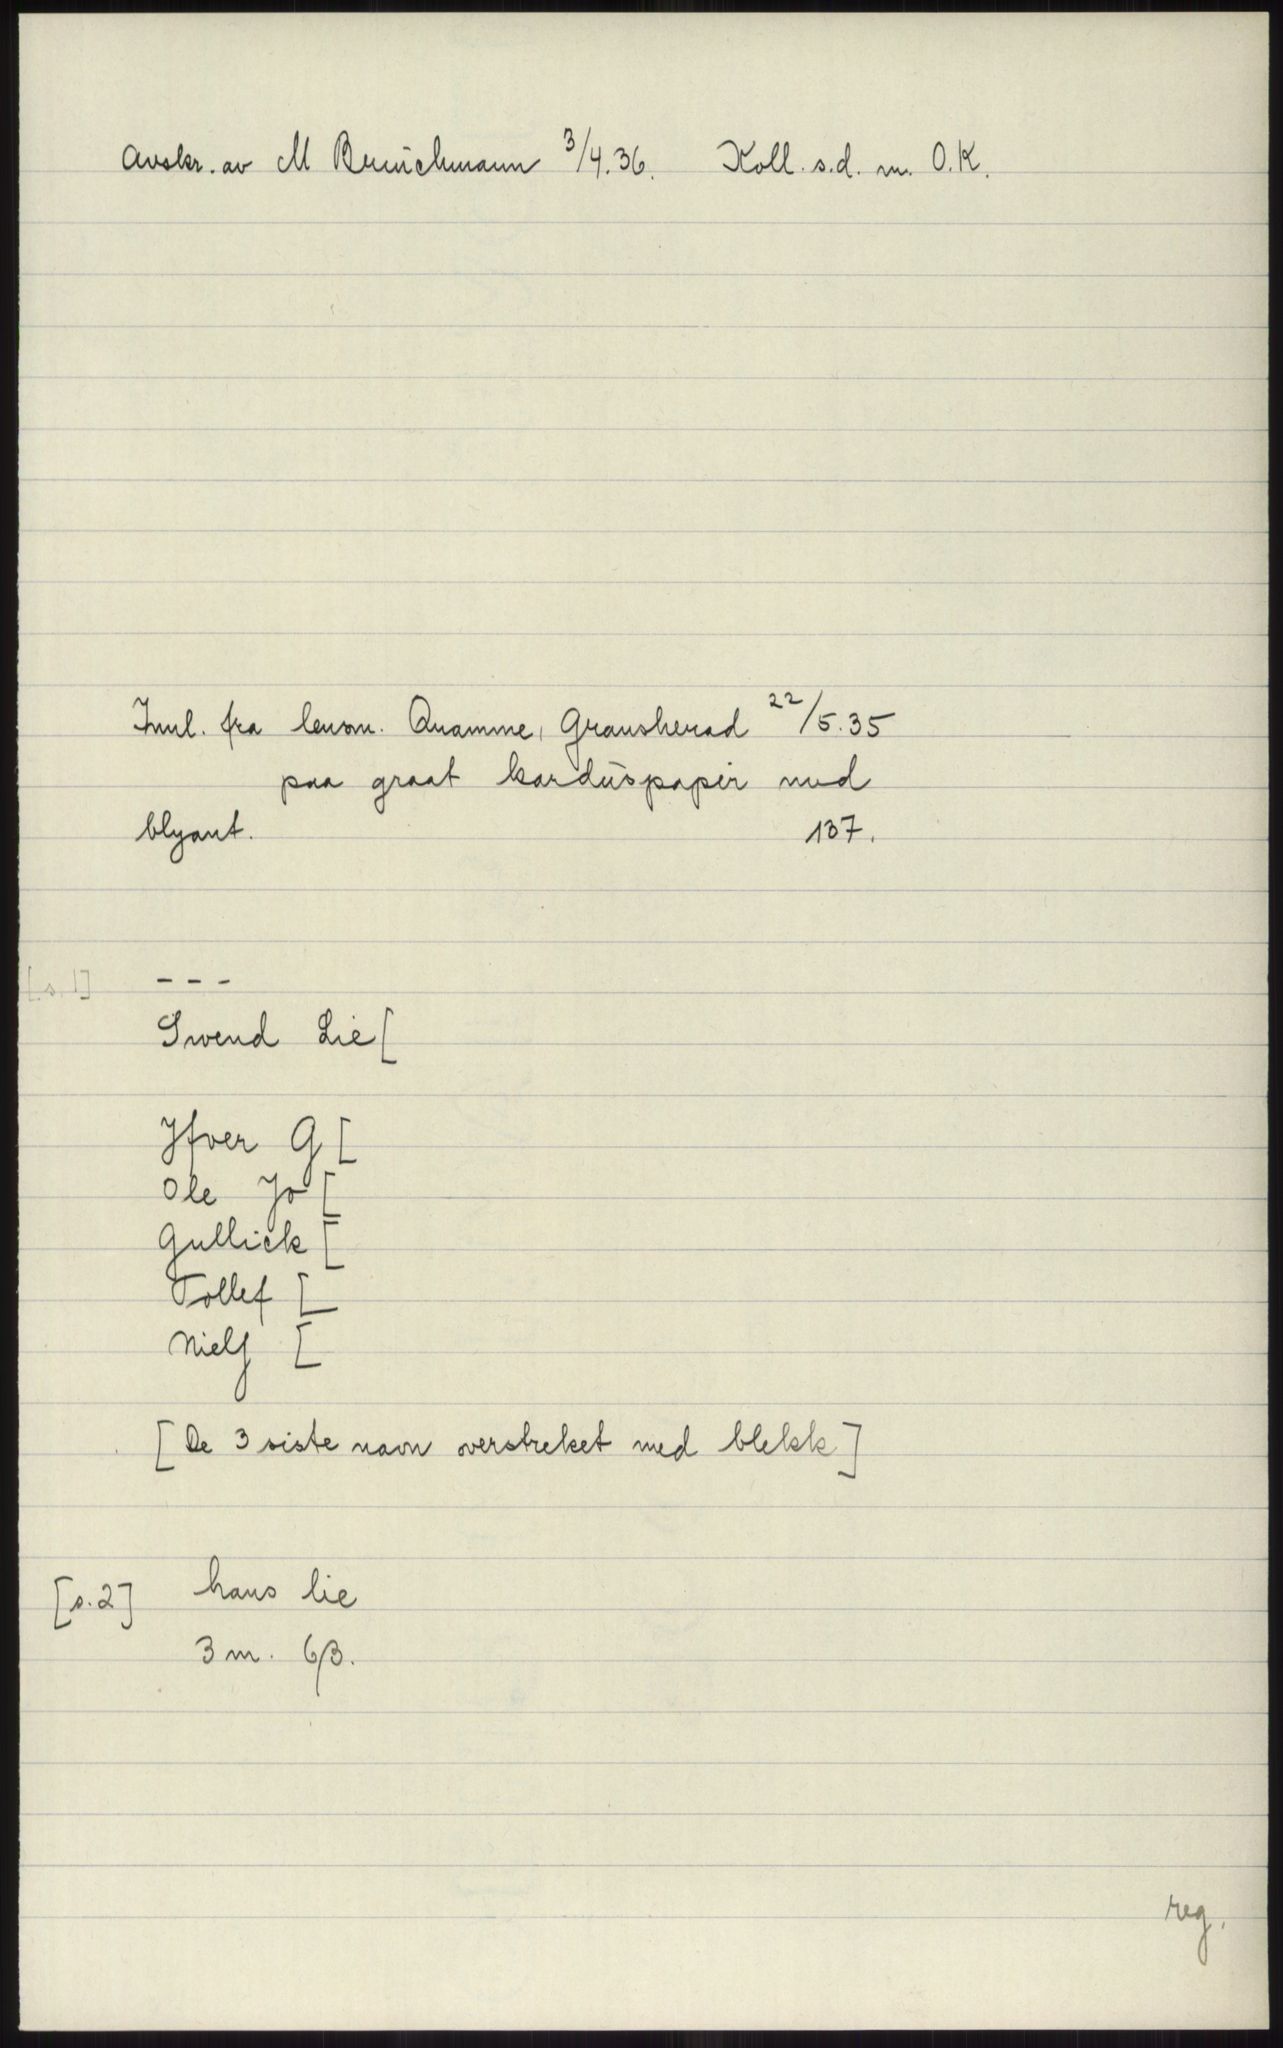 Avskr. av M Brinchmann 3/4.36. Koll. s.d. m. O.K.
Innl. fra lensm. Quamme, Gransherad 22/5.35
paa graat kardúspapir med
blyant. 137.
[s. 1] ---
Swend Lie [
Jfver G [
Ole Jo [
Gullick [
Tollef [
Nielſ [
[De 3 siste navn overstreket med blekk]
[s. 2] hans lie
3 m. 6β.
reg.